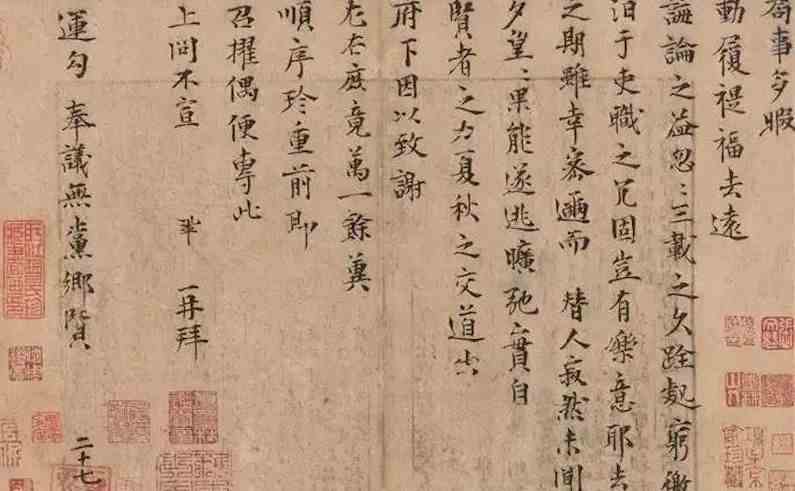 局事多暇
動履禔福去遠
誨論之益忽〻三載之久跧處窮徼
汩于吏職之冗固豈有樂意耶去
之期雖幸密邇而替人寂然未聞
夕望〻果能遂逃曠弛實自
賢者之力夏秋之交道出
府下因以致謝
左右庶竟萬一餘冀
順序珍重前即
召擢偶便專此
上問不宣 鞏再拜
運勾奉議無黨鄉賢 二十七